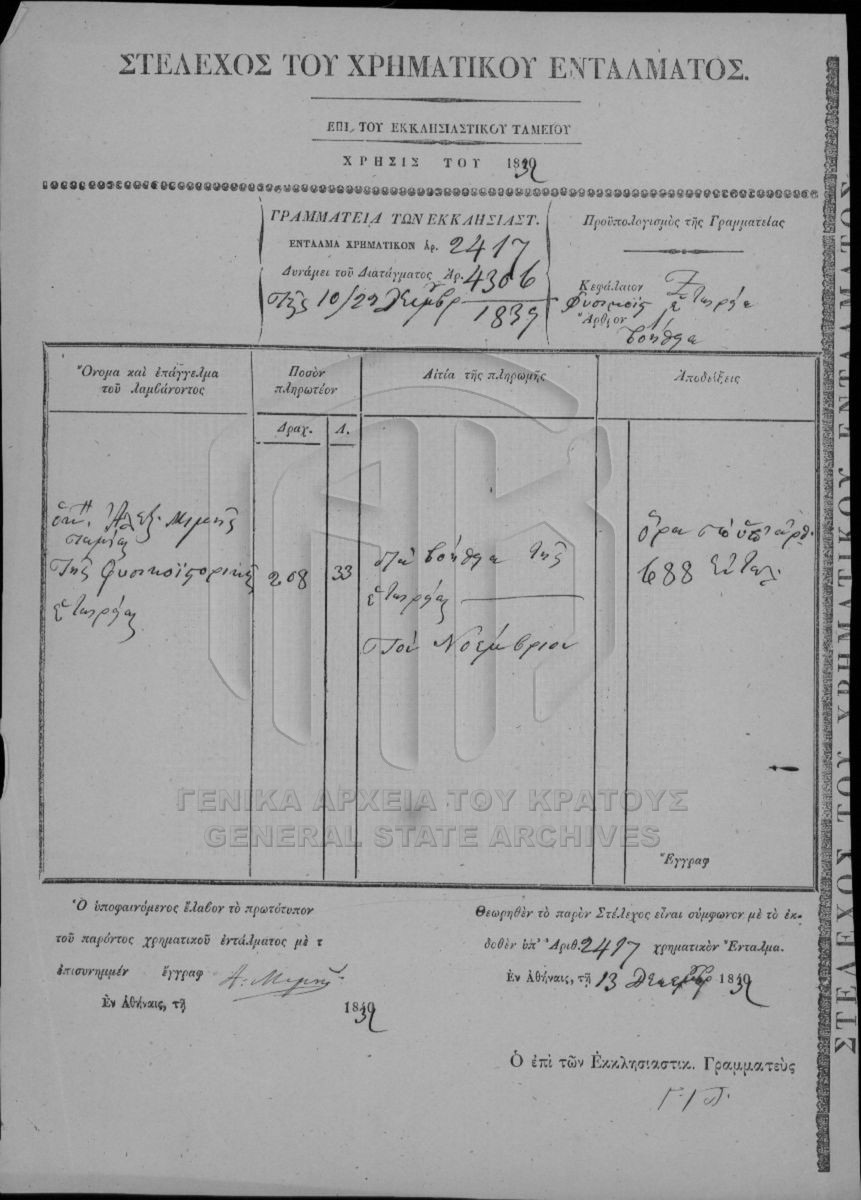 ΣΤΕΛΕΧΟΣ ΤΟΥ ΧΡΗΜΑΤΙΚΟΥ ΕΝΤΑΛΜΑΤΟΣ.
ΕΠΙ ΤΟΥ ΕΚΚΛΗΣΙΑΣΤΙΚΟΥ ΤΑΜΕΙΟΥ
ΧΡΗΣΙΣ ΤΟΥ 1839
ΓΡΑΜΜΑΤΕΙΑ ΤΩΝ ΕΚΚΛΗΣΙΑΣΤ.
ΕΝΤΑΛΜΑ ΧΡΗΜΑΤΙΚΟΝ Ἀρ. 2417
Δυνάμει τοῦ Διατάγματος Ἀρ. 4306
τῆς 10/22 Δεκεμβρ 1839
Προϋπολογισμὸς τῆς Γραμματείας
Κεφάλαιον
Ἄρθρον
Ὄνομα καὶ ἐπάγγελμα
τοῦ λαμβάνοντος
Ποσὸν
πληρωτέον
Αἰτία τῆς πληρωμῆς
Ἀποδείξεις
Δραχ. Λ.
Ἀλεξ.
ταμίας
τῆς Φυσικοϊστορικῆς
ἑταιρείας
208 33
βοήθεια τῆς
ἑταιρείας
τοῦ Νοεμβρίου
ὅρα τὸ ὑπ' ἀρθ.
688 ἔνταλ.
Ἔγγραφ
Ὁ ὑποφαινόμενος ἔλαβον τὸ πρωτότυπον
τοῦ παρόντος χρηματικοῦ ἐντάλματος μὲ τ
ἐπισυνημμέν ἔγγραφ
Ἐν Ἀθήναις, τῇ 1839
Θεωρηθὲν τὸ παρὸν Στέλεχος εἶναι σύμφωνον μὲ τὸ ἐκ-
δοθὲν ὑπ' Ἀριθ. 2417 χρηματικὸν Ἔνταλμα.
Ἐν Ἀθήναις, τῇ 13 Δεκεμβρ 1839
Ὁ ἐπὶ τῶν Ἐκκλησιαστικ. Γραμματεὺς
ΣΤΕΛΕΧΟΣ ΤΟΥ ΧΡΗΜΑΤΙΚΟΥ ΕΝΤΑΛΜΑΤΟΣ
ΓΕΝΙΚΑ ΑΡΧΕΙΑ ΤΟΥ ΚΡΑΤΟΥΣ
GENERAL STATE ARCHIVES